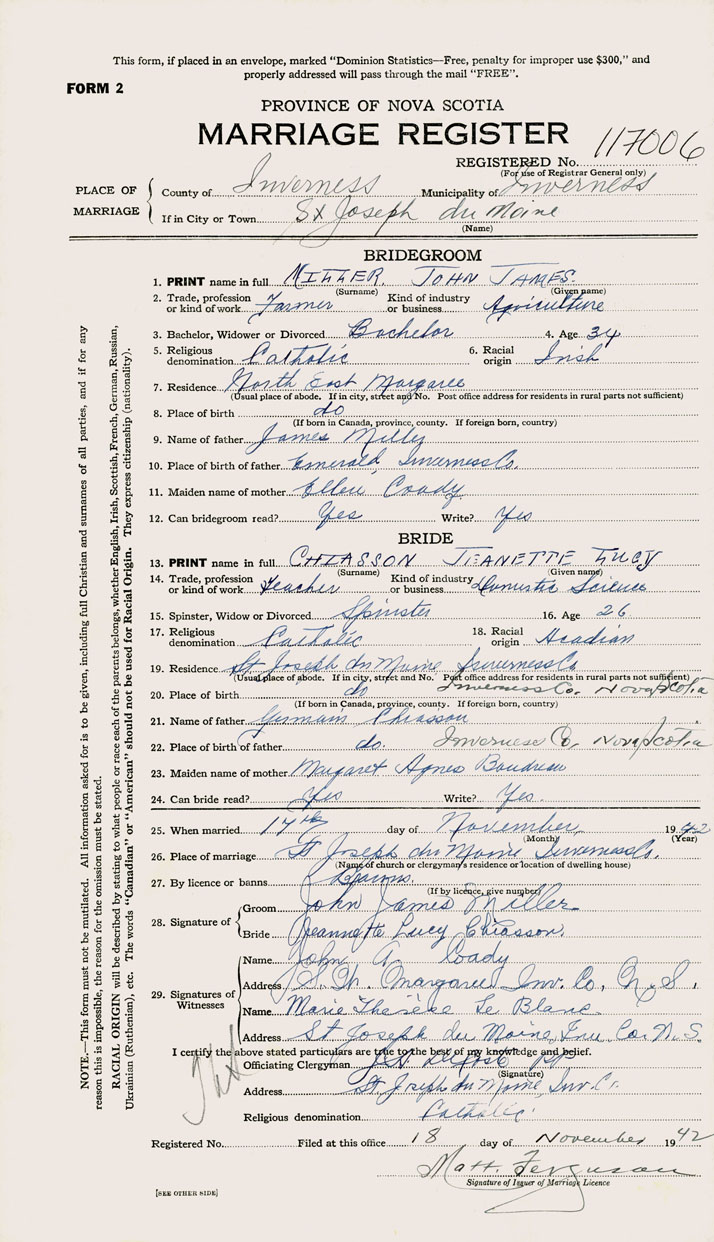 This form, if placed in an envelope, marked "Dominion Statistics—Free, penalty for improper use $300," and
properly addressed will pass through the mail "FREE".
FORM 2
PROVINCE OF NOVA SCOTIA
MARRIAGE REGISTER
REGISTERED No. 117006
(For use of Registrar General only)
PLACE OF MARRIAGE
County of Inverness Municipality of Inverness
If in City or Town St Joseph du Moine
(Name)
BRIDEGROOM
1. PRINT name in full MILLER, JOHN JAMES.
(Surname) (Given name)
2. Trade, profession or kind of work Farmer Kind of industry or business Agriculture
3. Bachelor, Widower or Divorced Bachelor 4. Age 34
5. Religious denomination Catholic 6. Racial origin Irish
7. Residence North East Margaree
(Usual place of abode. If in city, street and No. Post office address for residents in rural parts not sufficient)
8. Place of birth do
(If born in Canada, province, county. If foreign born, country)
9. Name of father James Miller
10. Place of birth of father Emerald, Inverness Co.
11. Maiden name of mother Ellen Coady
12. Can bridegroom read? Yes Write? Yes
BRIDE
13. PRINT name in full CHIASSON JEANETTE LUCY
(Surname) (Given name)
14. Trade, profession or kind of work Teacher Kind of industry or business Domestic Science
15. Spinster, Widow or Divorced Spinster 16. Age 26
17. Religious denomination Catholic 18. Racial origin Acadian
19. Residence St Joseph du Moine Inverness Co
(Usual place of abode. If in city, street and No. Post office address for residents in rural parts not sufficient)
20. Place of birth do Inverness Co. Nova Scotia
(If born in Canada, province, county. If foreign born, country)
21. Name of father Germain Chiasson
22. Place of birth of father do. Inverness Co, Nova Scotia
23. Maiden name of mother Margaret Agnes Boudreau
24. Can bride read? Yes Write? Yes.
25. When married 17th day of November, 1942
(Month) (Year)
26. Place of marriage St Joseph du Moine Inverness Co.
(Name of church or clergyman's residence or location of dwelling house)
27. By licence or banns Banns.
(If by licence, give number)
28. Signature of
Groom John James Miller
Bride Jeannette Lucy Chiasson.
29. Signatures of Witnesses
Name John A Coady
Address Margaree Inv. Co. N.S.
Name Marie Thérèse Le Blanc
Address St Joseph du Moine, Inv. Co. N.S.
I certify the above stated particulars are true to the best of my knowledge and belief.
Officiating Clergyman PP
(Signature)
Address St Joseph du Moine, Inv. Co.
Religious denomination Catholic.
Registered No. Filed at this office 18 day of November 1942
Matt. Ferguson
Signature of Issuer of Marriage Licence
[SEE OTHER SIDE]
NOTE.—This form must not be mutilated. All information asked for is to be given, including full Christian and surnames of all parties, and if for any
reason this is impossible, the reason for the omission must be stated.
RACIAL ORIGIN will be described by stating to what people or race each of the parents belongs, whether English, Irish, Scottish, French, German, Russian,
Ukrainian (Ruthenian), etc. The words "Canadian" or "American" should not be used for Racial Origin. They express citizenship (nationality).